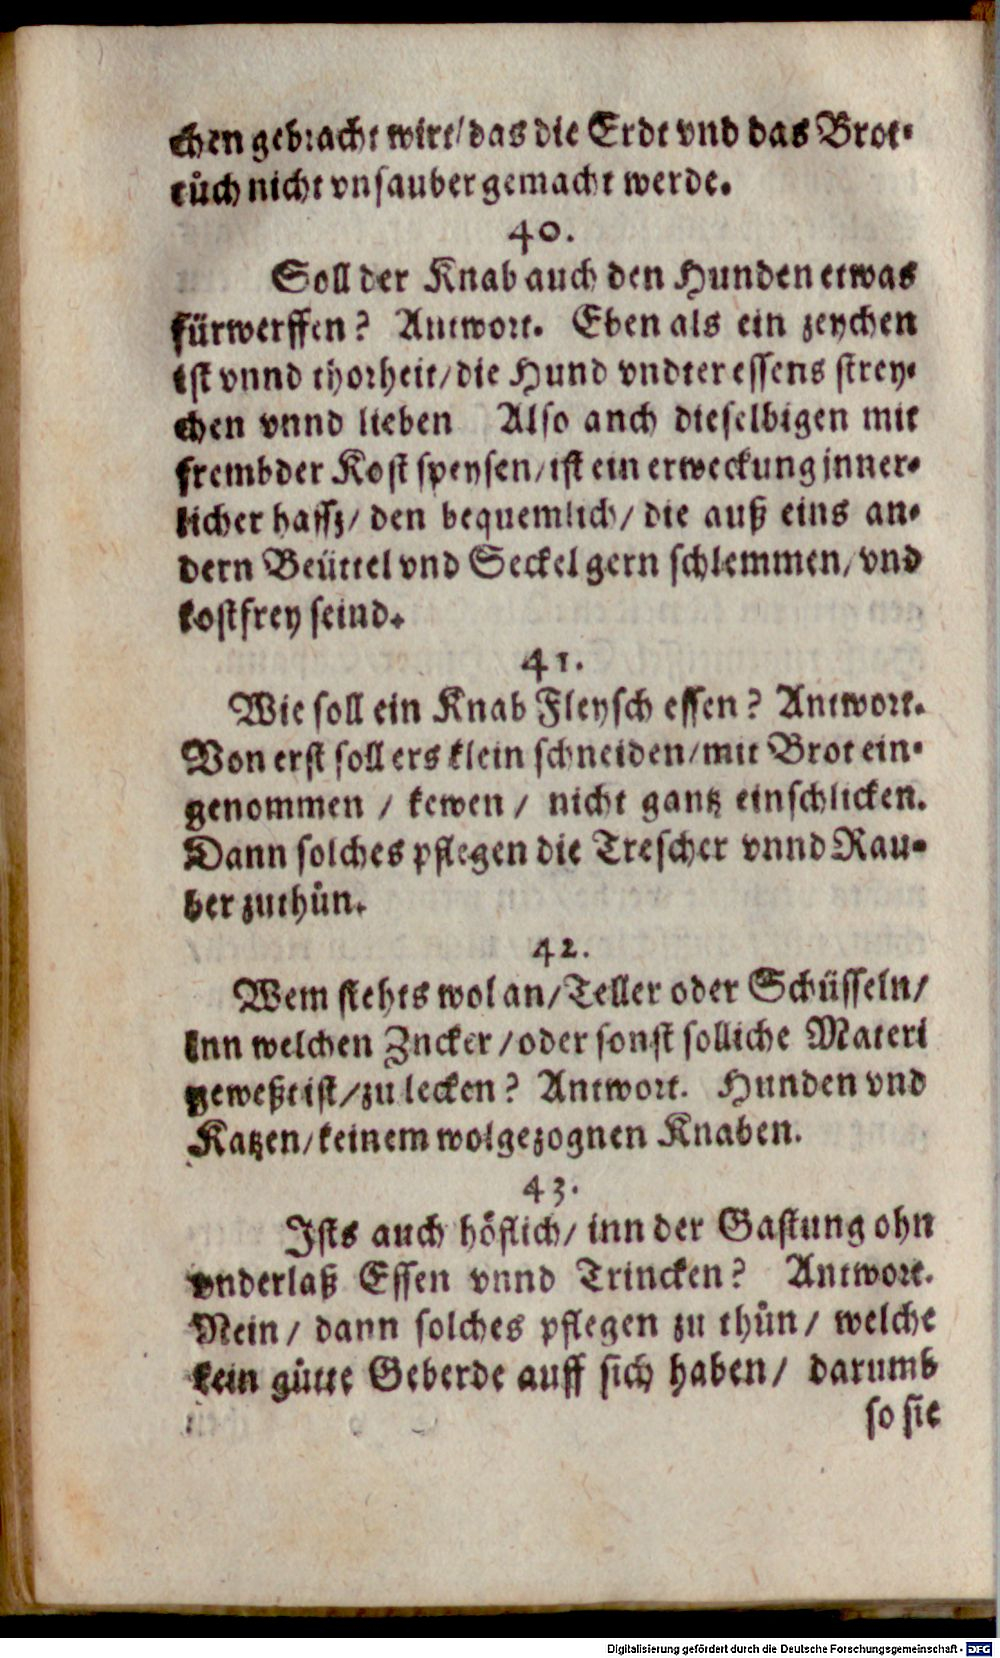 chen gebracht wirt/ das die Erdt vnd das Brot-
tůch nicht vnsauber gemacht werde.
40.
Soll der Knab auch den Hunden etwas
fürwerffen? Antwort. Eben als ein zeychen
ist vnnd thorheit/ die Hund vndter essens strey-
chen vnnd lieben Also anch dieselbigen mit
frembder Kost speysen/ ist ein erweckung inner-
licher hassz/ den bequemlich/ die auß eins an-
dern Beüttel vnd Seckel gern schlemmen/ vnd
kostfrey seind.
41.
Wie soll ein Knab Fleysch essen? Antwort.
Von erst soll ers klein schneiden/ mit Brot ein-
genommen / kewen / nicht gantz einschlicken.
Dann solches pflegen die Trescher vnnd Rau-
ber zuthůn.
42.
Wem stehts wol an/ Teller oder Schüsseln/
inn welchen Zncker / oder sonst solliche Materi
geweßt ist/ zu lecken? Antwort. Hunden vnd
Katzen/ keinem wolgezognen Knaben.
43.
Ists auch höflich/ inn der Gastung ohn
vnderlaß Essen vnnd Trincken? Antwort.
Nein/ dann solches pflegen zu thůn/ welche
kein gůtte Geberde auff sich haben/ darumb
so sie
Digitalisierung gefördert durch die Deutsche Forschungsgemeinschaft - DFG